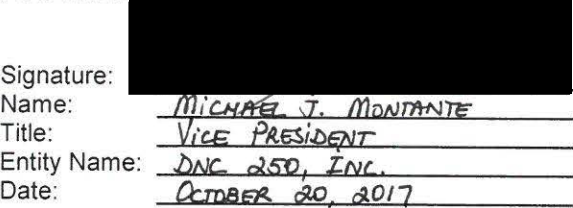 Signature:
Name: MICHAEL J. MONTANTE
Title: VICE PRESIDENT
Entity Name: DNC 250, INC.
Date: OCTOBER 20, 2017